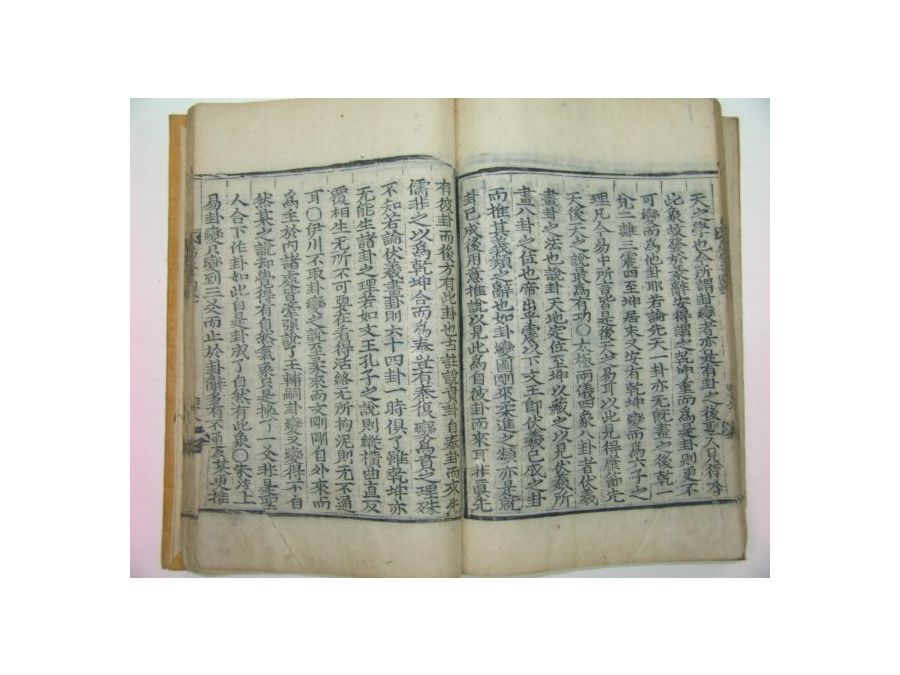 天之學也今所謂卦變者亦是有卦之後聖人見得有
此象故發於彖辭安得謂之乾坤重而爲是卦則更不
可變而爲他卦耶若論先天一卦亦无旣畫之後乾一
兌二離三震四至坤居末又安有乾坤變而爲六子之
理凡今易中所言皆是後天之易耳以此見得康節先
天後天之說最爲有功○太極兩儀四象八卦者伏羲
畫卦之法也說卦天地定位至坤以藏之以見伏羲所
畫八卦之位也帝出乎震以下文王卽伏羲已成之卦
而推其義類之辭也如卦變圖剛來柔進之類亦是就
卦已成後用意推說以見此爲自彼卦而來耳非眞先
有彼卦而後方有此卦也古註說賁卦自泰卦而來先
儒非之以爲乾坤合而爲泰豈有泰復變爲賁之理殊
不知若論伏羲畫卦則六十四卦一時俱了雖乾坤亦
无能生諸卦之理若如文王孔子之說則縱橫曲直反
覆相生无所不可要在看得活絡无所拘泥則无不通
耳○伊川不取卦變之說至柔來而文剛剛自外來而
爲主於內諸處皆牽强說了王輔嗣卦變又變得不自
然某之說却覺得有自然氣象只是換了一爻非是聖
人合下作卦如此自是卦成了自然有此象○朱 上
易卦變只變到三爻而止於卦辭多有不通處某更推